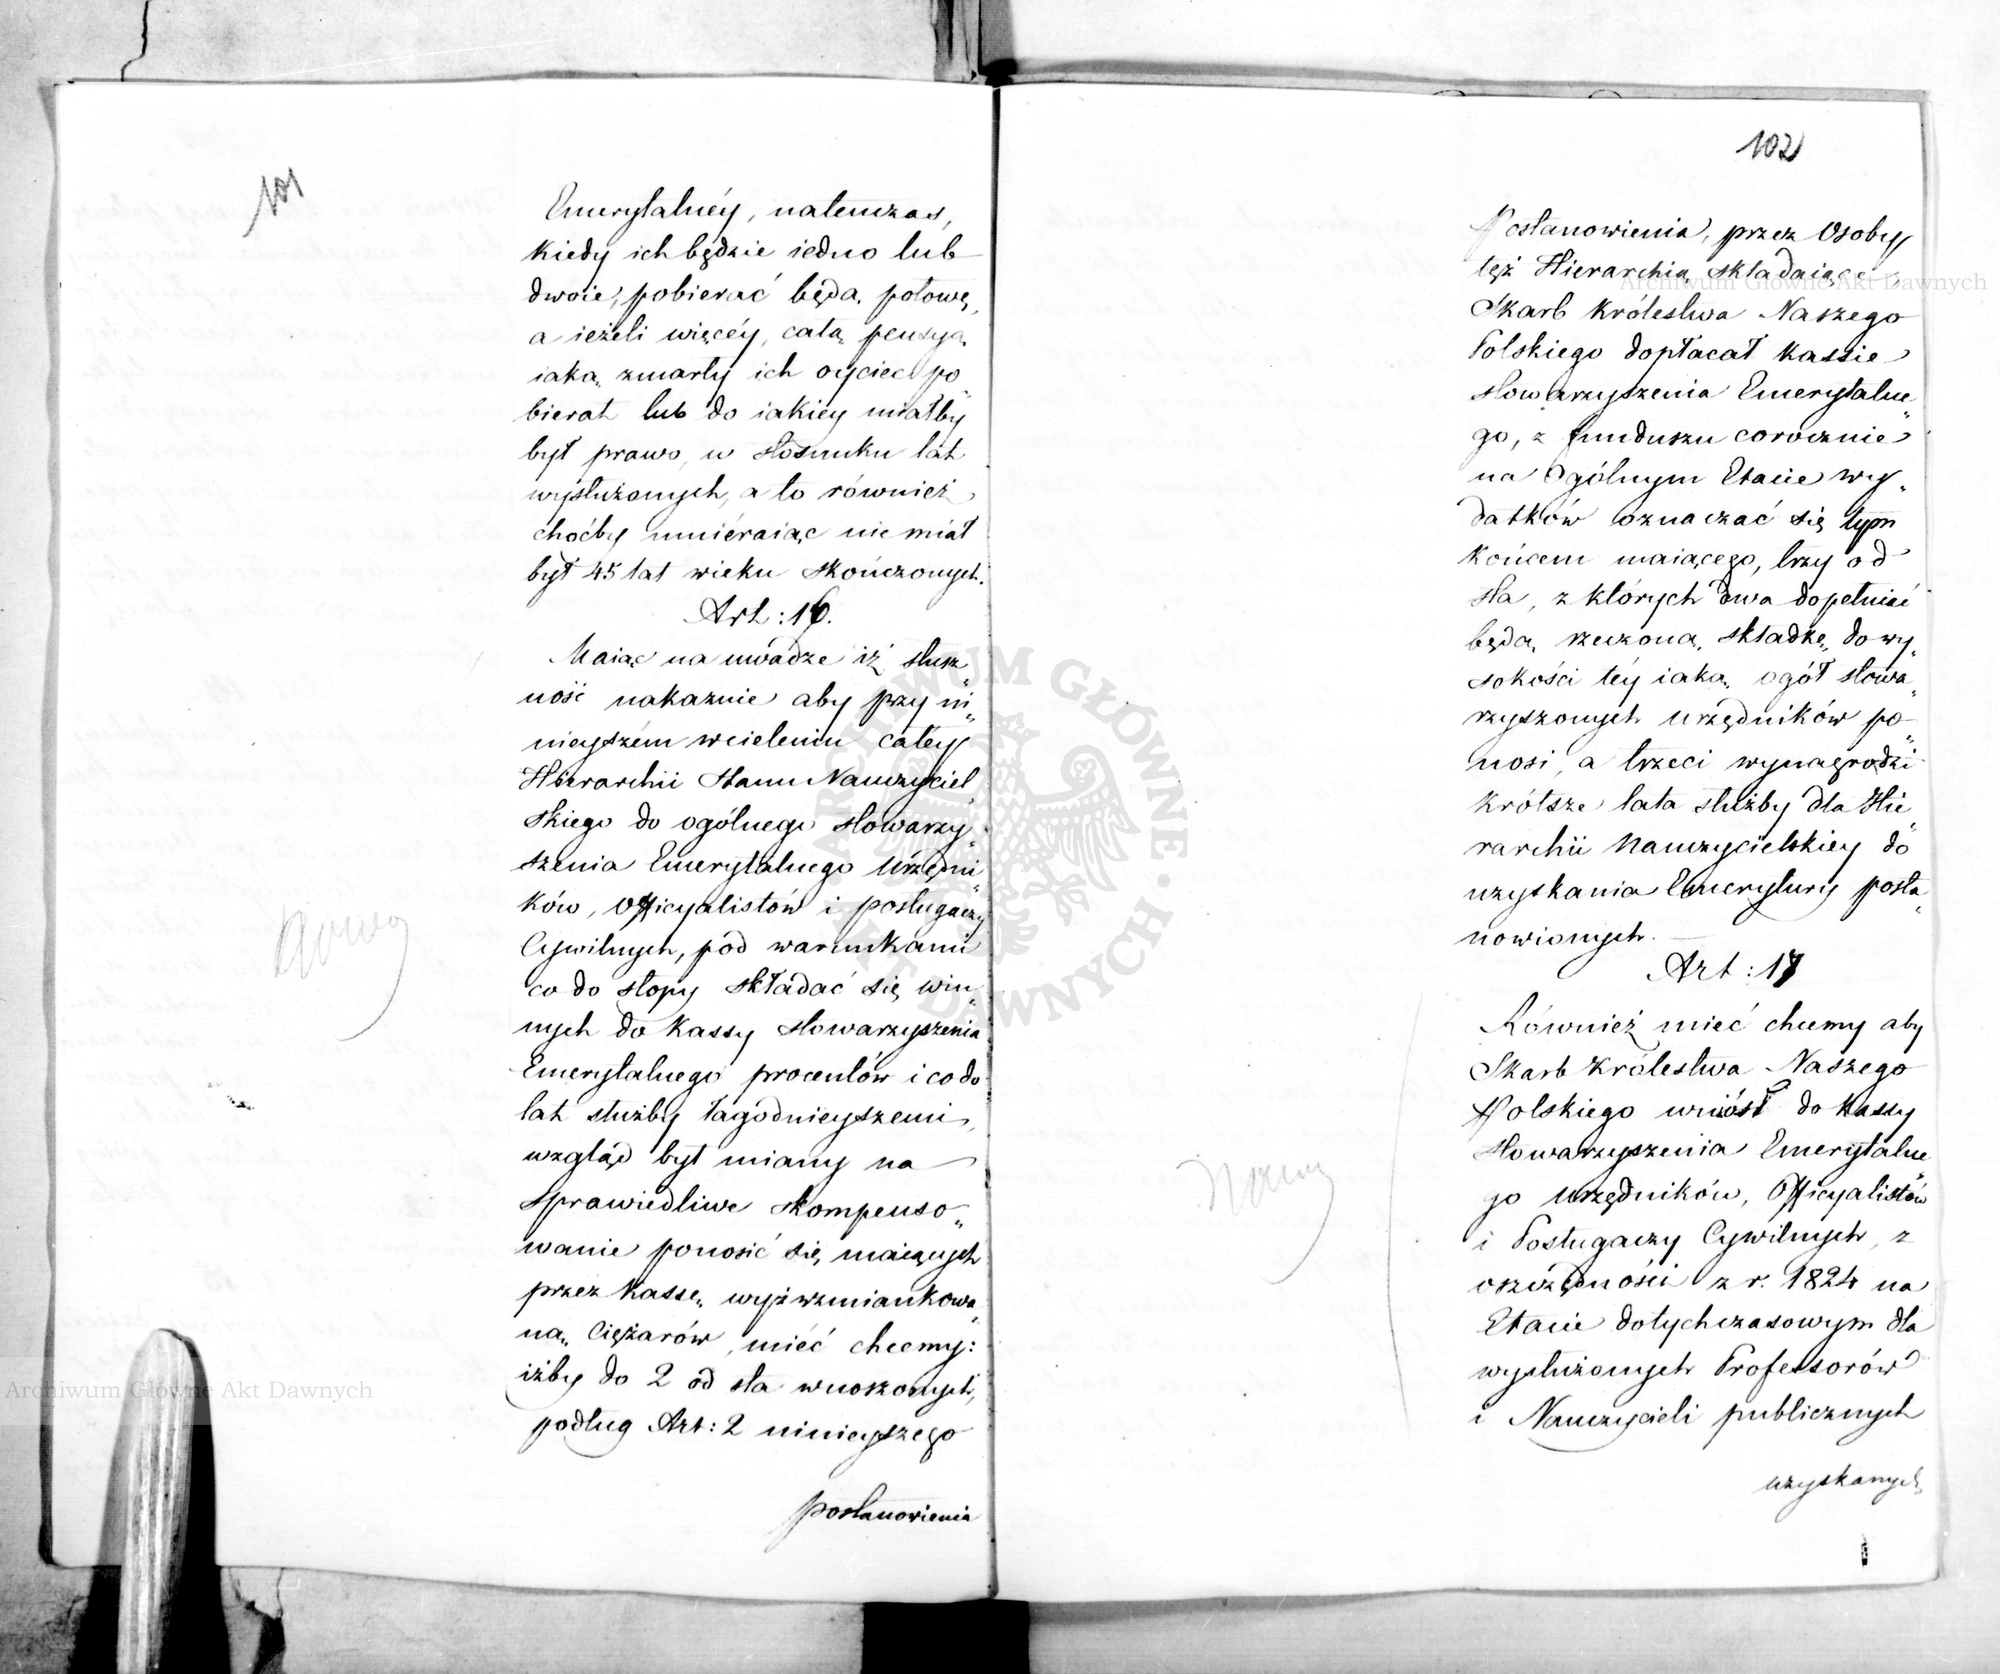 101
Emerytalnéy, natenczas,
kiedy ich będzie iedno lub
dwoie, pobierać będą połowę,
a ieżeli więcéy, całą pensyą,
iaką zmarły ich oyciec po„
bierał lub do iakiey miałby
był prawo, w stosunku lat
wysłużonych, a to również
choćby umiéraiąc nie miał
był 45 lat wieku skończonych.
Art: 16.
Maiąc na uwadze iż słusz„
ność nakazuie aby przy ni„
nieyszém wcieleniu całey
Hierarchii Stanu Nauczyciel„
skiego do ogólnego stowarzy„
szenia Emerytalnego Urzędni„
ków, Officyalistów i posługaczy
Cywilnych, pod warunkami
co do stopy składać się win„
nych do Kassy stowarzyszenia
Emerytalnego procentów i co do
lat służby łagodnieyszemi,
wzgląd był miany na
sprawiedliwe skompenso„
wanie ponosić się maiących
przez kassę wyż wzmiankowa„
ną Ciężarów, mieć chcemy:
iżby do 2 od sta wnoszonych,
podług Art: 2 ninieyszego
postanowienia
102
Postanowienia, przez Osoby
też Hierarchią składaiące
Skarb Królestwa Naszego
Polskiego dopłacał kassie
stowarzyszenia Emerytalne„
go, z funduszu corocznie
na Ogólnym Etacie wy„
datków oznaczać się tym
końcem maiącego, trzy od
sta, z których dwa dopełnić
będą rzeczoną składkę, do wy„
sokości téy iaką ogół stowa„
rzyszonych urzędników po„
nosi, a trzeci wynagrodzi
krótsze lata służby dla Hie„
rarchii Nauczycielskiey do
uzyskania Emerytury posta„
nowionych.
Art: 17
Również mieć chcemy aby
Skarb Królestwa Naszego
Polskiego wniósł do kassy
stowarzyszenia Emerytalne„
go urzędników, Officyalistów
i Posługaczy Cywilnych, z
oszczędności z r. 1824 na
Etacie dotychczasowym dla
wysłużonych Professorów
i Nauczycieli publicznych
uzyskanych
Archiwum Główne Akt Dawnych
Archiwum Główne Akt Dawnych
ARCHIWUM GŁÓWNE AKT DAWNYCH